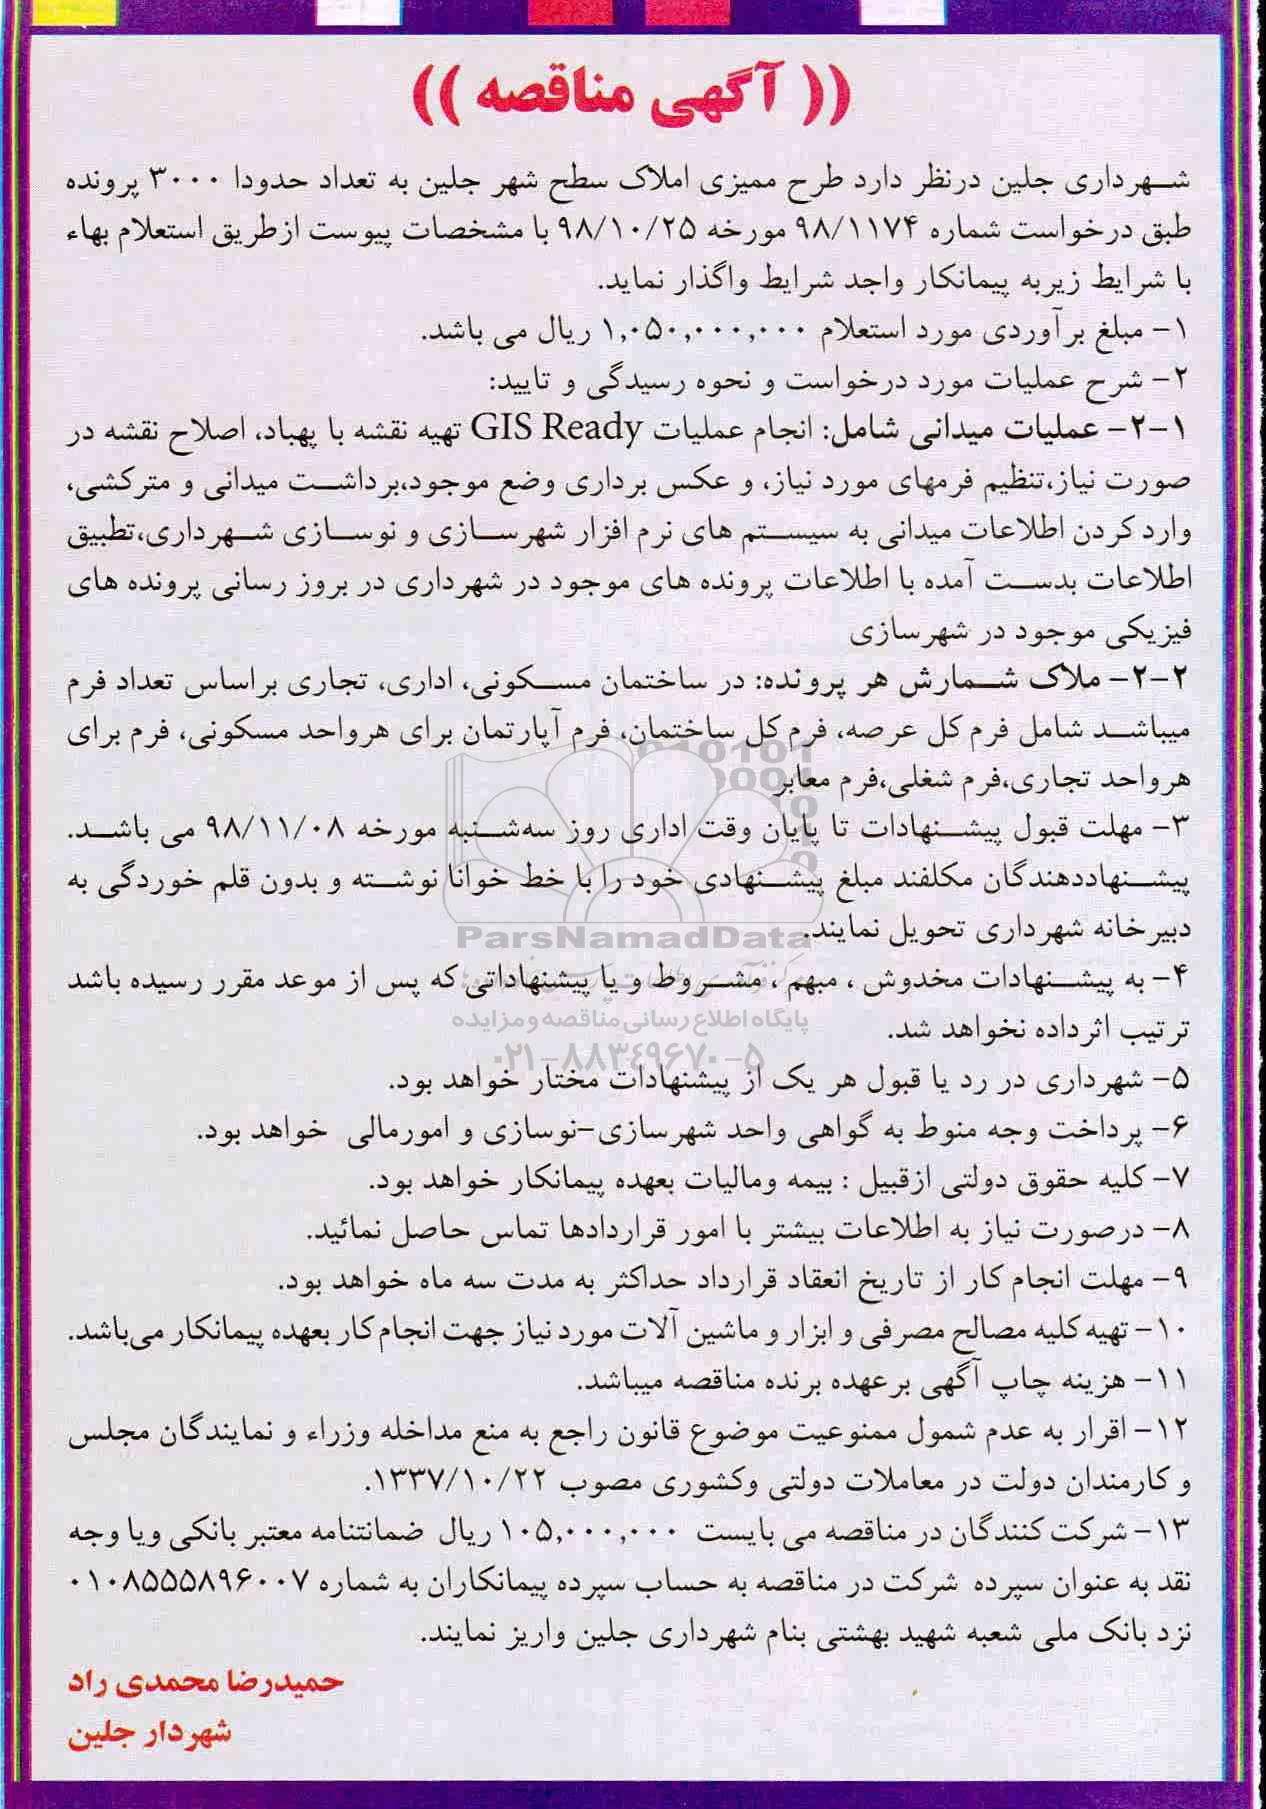 (( آگهی مناقصه ))
شهرداری جلین درنظر دارد طرح ممیزی املاک سطح شهر جلین به تعداد حدودا ۳۰۰۰ پرونده
طبق درخواست شماره ۹۸/۱۱۷۴ مورخه ۹۸/۱۰/۲۵ با مشخصات پیوست ازطریق استعلام بهاء
با شرایط زیربه پیمانکار واجد شرایط واگذار نماید.
۱- مبلغ برآوردی مورد استعلام ۱,۰۵۰,۰۰۰,۰۰۰ ریال می باشد.
۲- شرح عملیات مورد درخواست و نحوه رسیدگی و تایید:
۲-۱- عملیات میدانی شامل: انجام عملیات GIS Ready تهیه نقشه با پهباد، اصلاح نقشه در
صورت نیاز،تنظیم فرمهای مورد نیاز، و عکس برداری وضع موجود،برداشت میدانی و مترکشی،
وارد کردن اطلاعات میدانی به سیستم های نرم افزار شهرسازی و نوسازی شهرداری،تطبیق
اطلاعات بدست آمده با اطلاعات پرونده های موجود در شهرداری در بروز رسانی پرونده های
فیزیکی موجود در شهرسازی
۲-۲- ملاک شمارش هر پرونده: در ساختمان مسکونی، اداری، تجاری براساس تعداد فرم
میباشد شامل فرم کل عرصه، فرم کل ساختمان، فرم آپارتمان برای هرواحد مسکونی، فرم برای
هرواحد تجاری،فرم شغلی،فرم معابر
۳- مهلت قبول پیشنهادات تا پایان وقت اداری روز سه‌شنبه مورخه ۹۸/۱۱/۰۸ می باشد.
پیشنهاددهندگان مکلفند مبلغ پیشنهادی خود را با خط خوانا نوشته و بدون قلم خوردگی به
دبیرخانه شهرداری تحویل نمایند.
ParsNamadData
۴- به پیشنهادات مخدوش ، مبهم ، مشروط و یا پیشنهاداتی که پس از موعد مقرر رسیده باشد
پایگاه اطلاع رسانی مناقصه و مزایده
ترتیب اثرداده نخواهد شد.
۰۲۱-۸۸۳۴۹۶۷۰-۵
۵- شهرداری در رد یا قبول هر یک از پیشنهادات مختار خواهد بود.
۶- پرداخت وجه منوط به گواهی واحد شهرسازی-نوسازی و امورمالی خواهد بود.
۷- کلیه حقوق دولتی ازقبیل : بیمه ومالیات بعهده پیمانکار خواهد بود.
۸- درصورت نیاز به اطلاعات بیشتر با امور قراردادها تماس حاصل نمائید.
۹- مهلت انجام کار از تاریخ انعقاد قرارداد حداکثر به مدت سه ماه خواهد بود.
۱۰- تهیه کلیه مصالح مصرفی و ابزار و ماشین آلات مورد نیاز جهت انجام کار بعهده پیمانکار می‌باشد.
۱۱- هزینه چاپ آگهی برعهده برنده مناقصه میباشد.
۱۲- اقرار به عدم شمول ممنوعیت موضوع قانون راجع به منع مداخله وزراء و نمایندگان مجلس
و کارمندان دولت در معاملات دولتی وکشوری مصوب ۱۳۳۷/۱۰/۲۲.
۱۳- شرکت کنندگان در مناقصه می بایست ۱۰۵,۰۰۰,۰۰۰ ریال ضمانتنامه معتبر بانکی ویا وجه
نقد به عنوان سپرده شرکت در مناقصه به حساب سپرده پیمانکاران به شماره ۰۱۰۸۵۵۵۸۹۶۰۰۷
نزد بانک ملی شعبه شهید بهشتی بنام شهرداری جلین واریز نمایند.
حمیدرضا محمدی راد
شهردار جلین